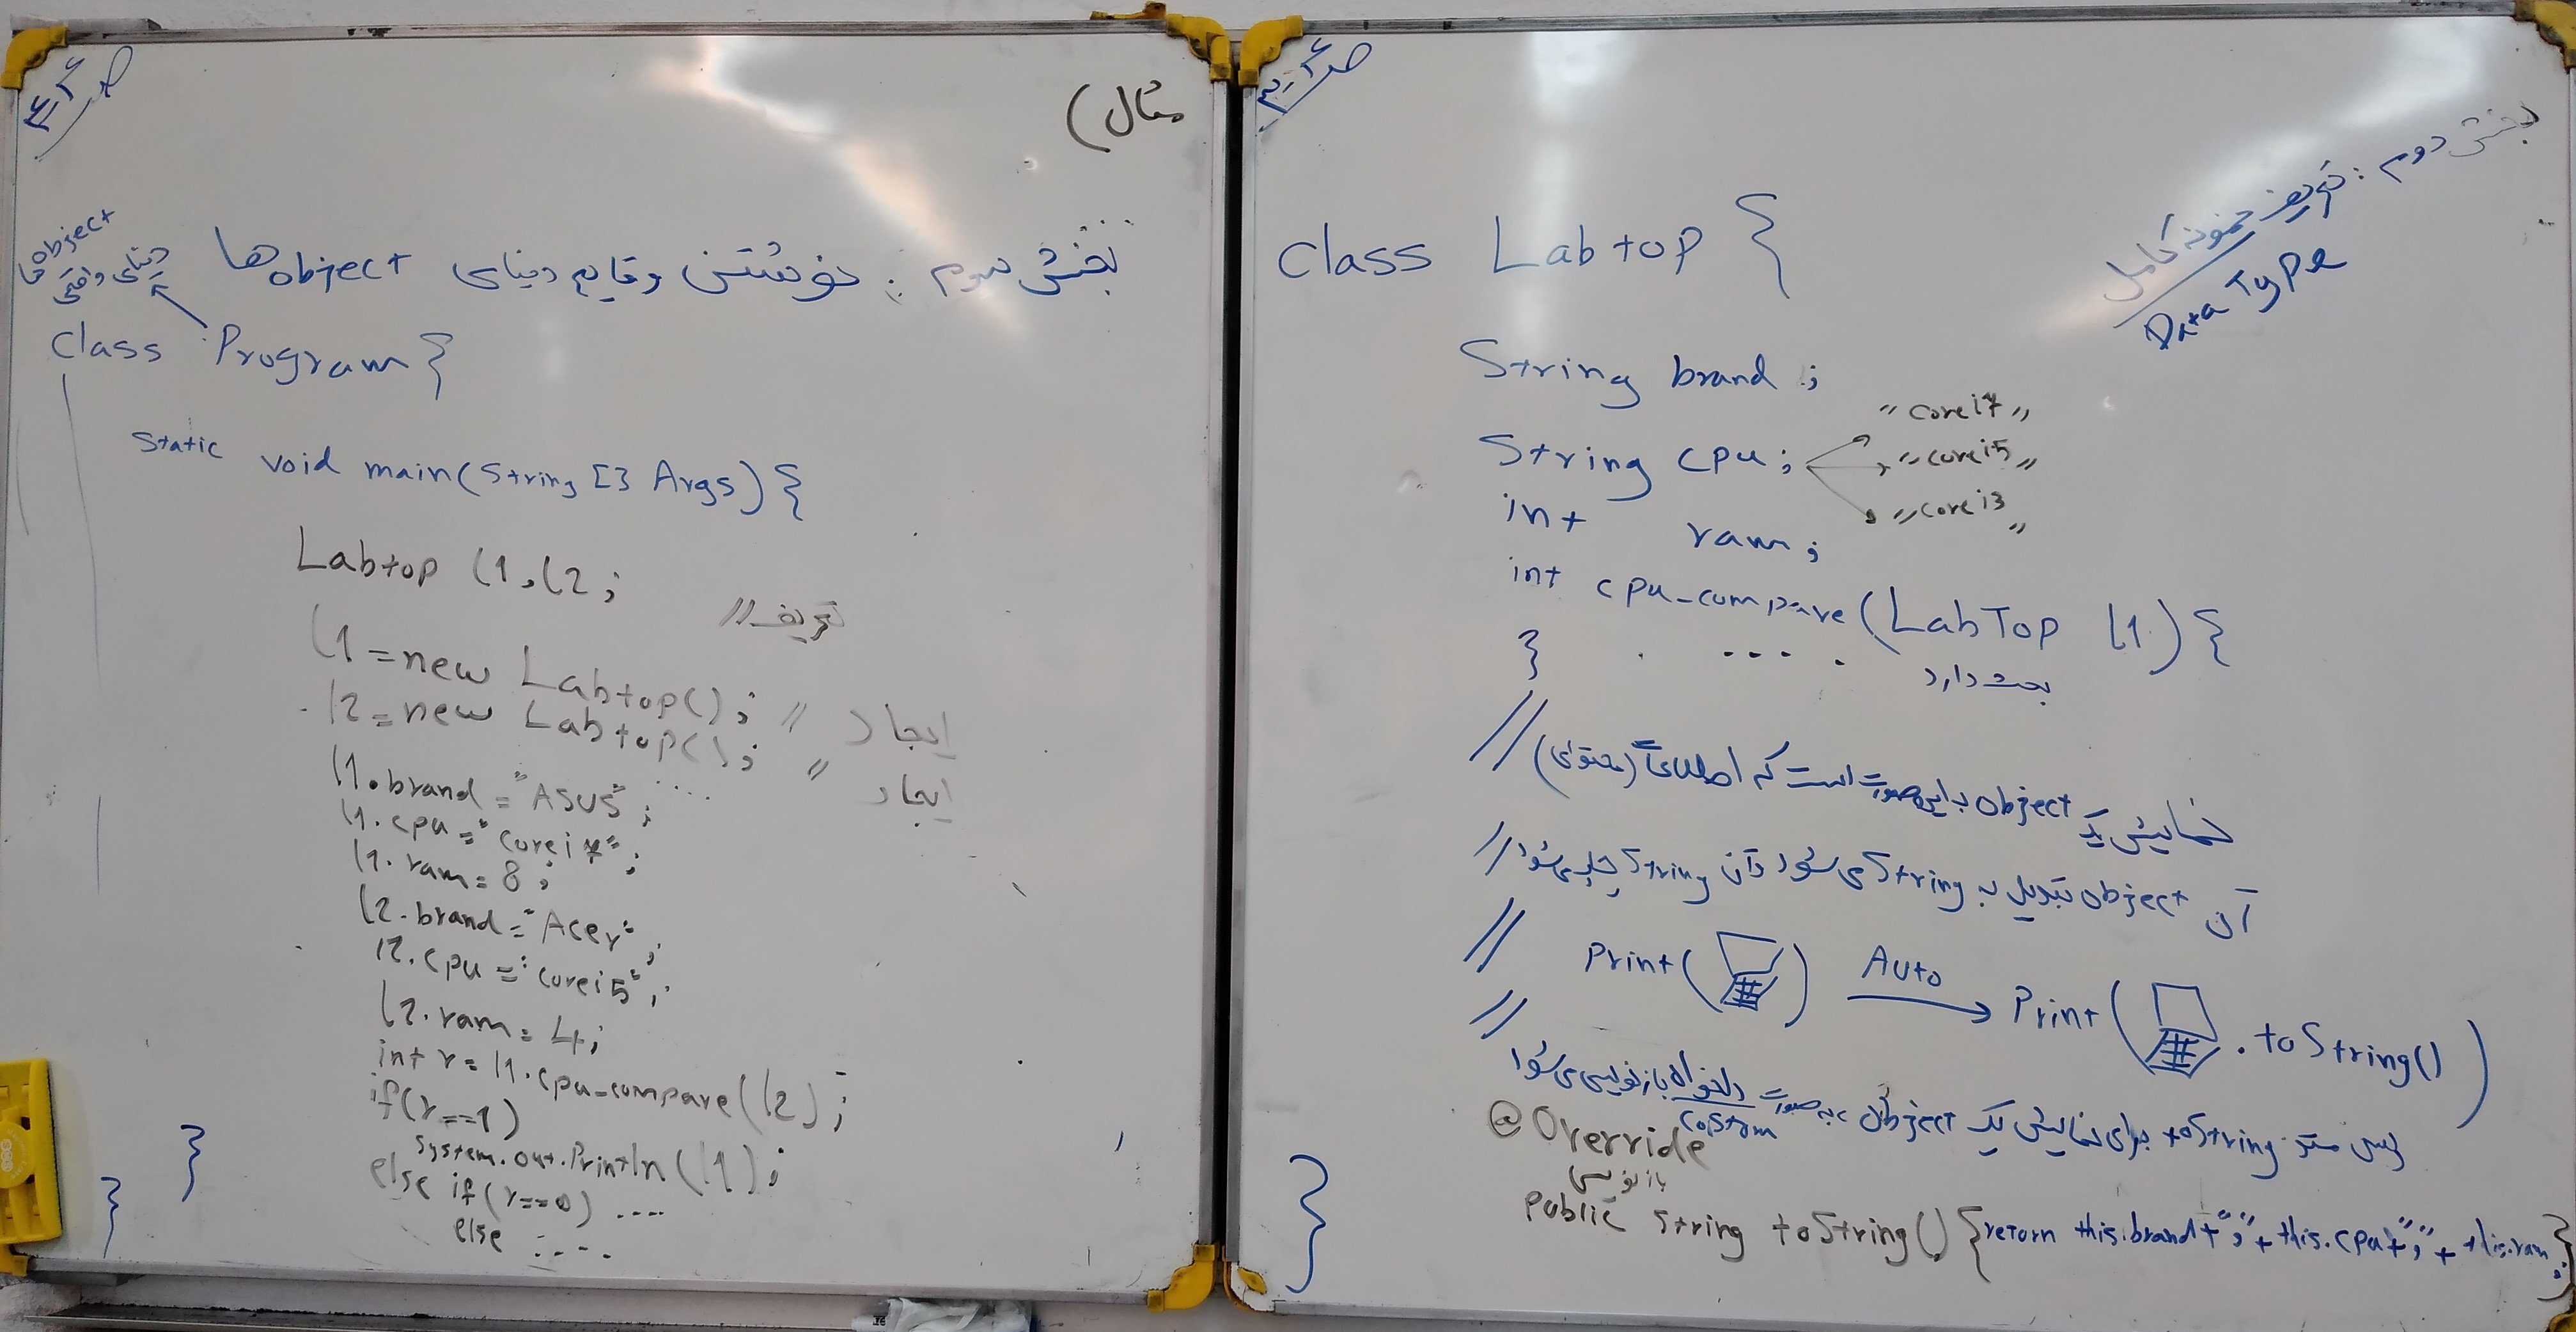 مثال)
بخش سوم : نوشتن وقایع دنیای object ها
دنیای واقعی
object ها
class Program {
static void main(String [] Args) {
Labtop l1,l2; // تعریف
l1=new Labtop(); // ایجاد
l2=new Labtop(); // ایجاد
l1.brand="ASUS";
l1.cpu="corei7";
l1.ram=8;
l2.brand="Acer";
l2.cpu="corei5";
l2.ram=4;
int r=l1.cpu_compare(l2);
if(r==1)
System.out.Println(l1);
else if(r==0) ....
else ....
}
}
بخش دوم : تعریف نمونه کامل
Data Type
class Labtop {
String brand ;
String cpu;
"corei7"
"corei5"
"corei3"
int ram;
int cpu_compare(LabTop l1) {
.... بحث دارد
}
// نمایش یک object به این صورت است که اطلاعات (محتوای)
// آن object تبدیل به String می شود و آن String چاپ می شود
// Print( ) Auto → Print( .toString())
// پس متد toString برای نمایش یک object به صورت دلخواه بازنویسی می شود
Costom
@Override
بازنویسی
Public String toString() {return this.brand+","+this.cpu+","+this.ram;}
}